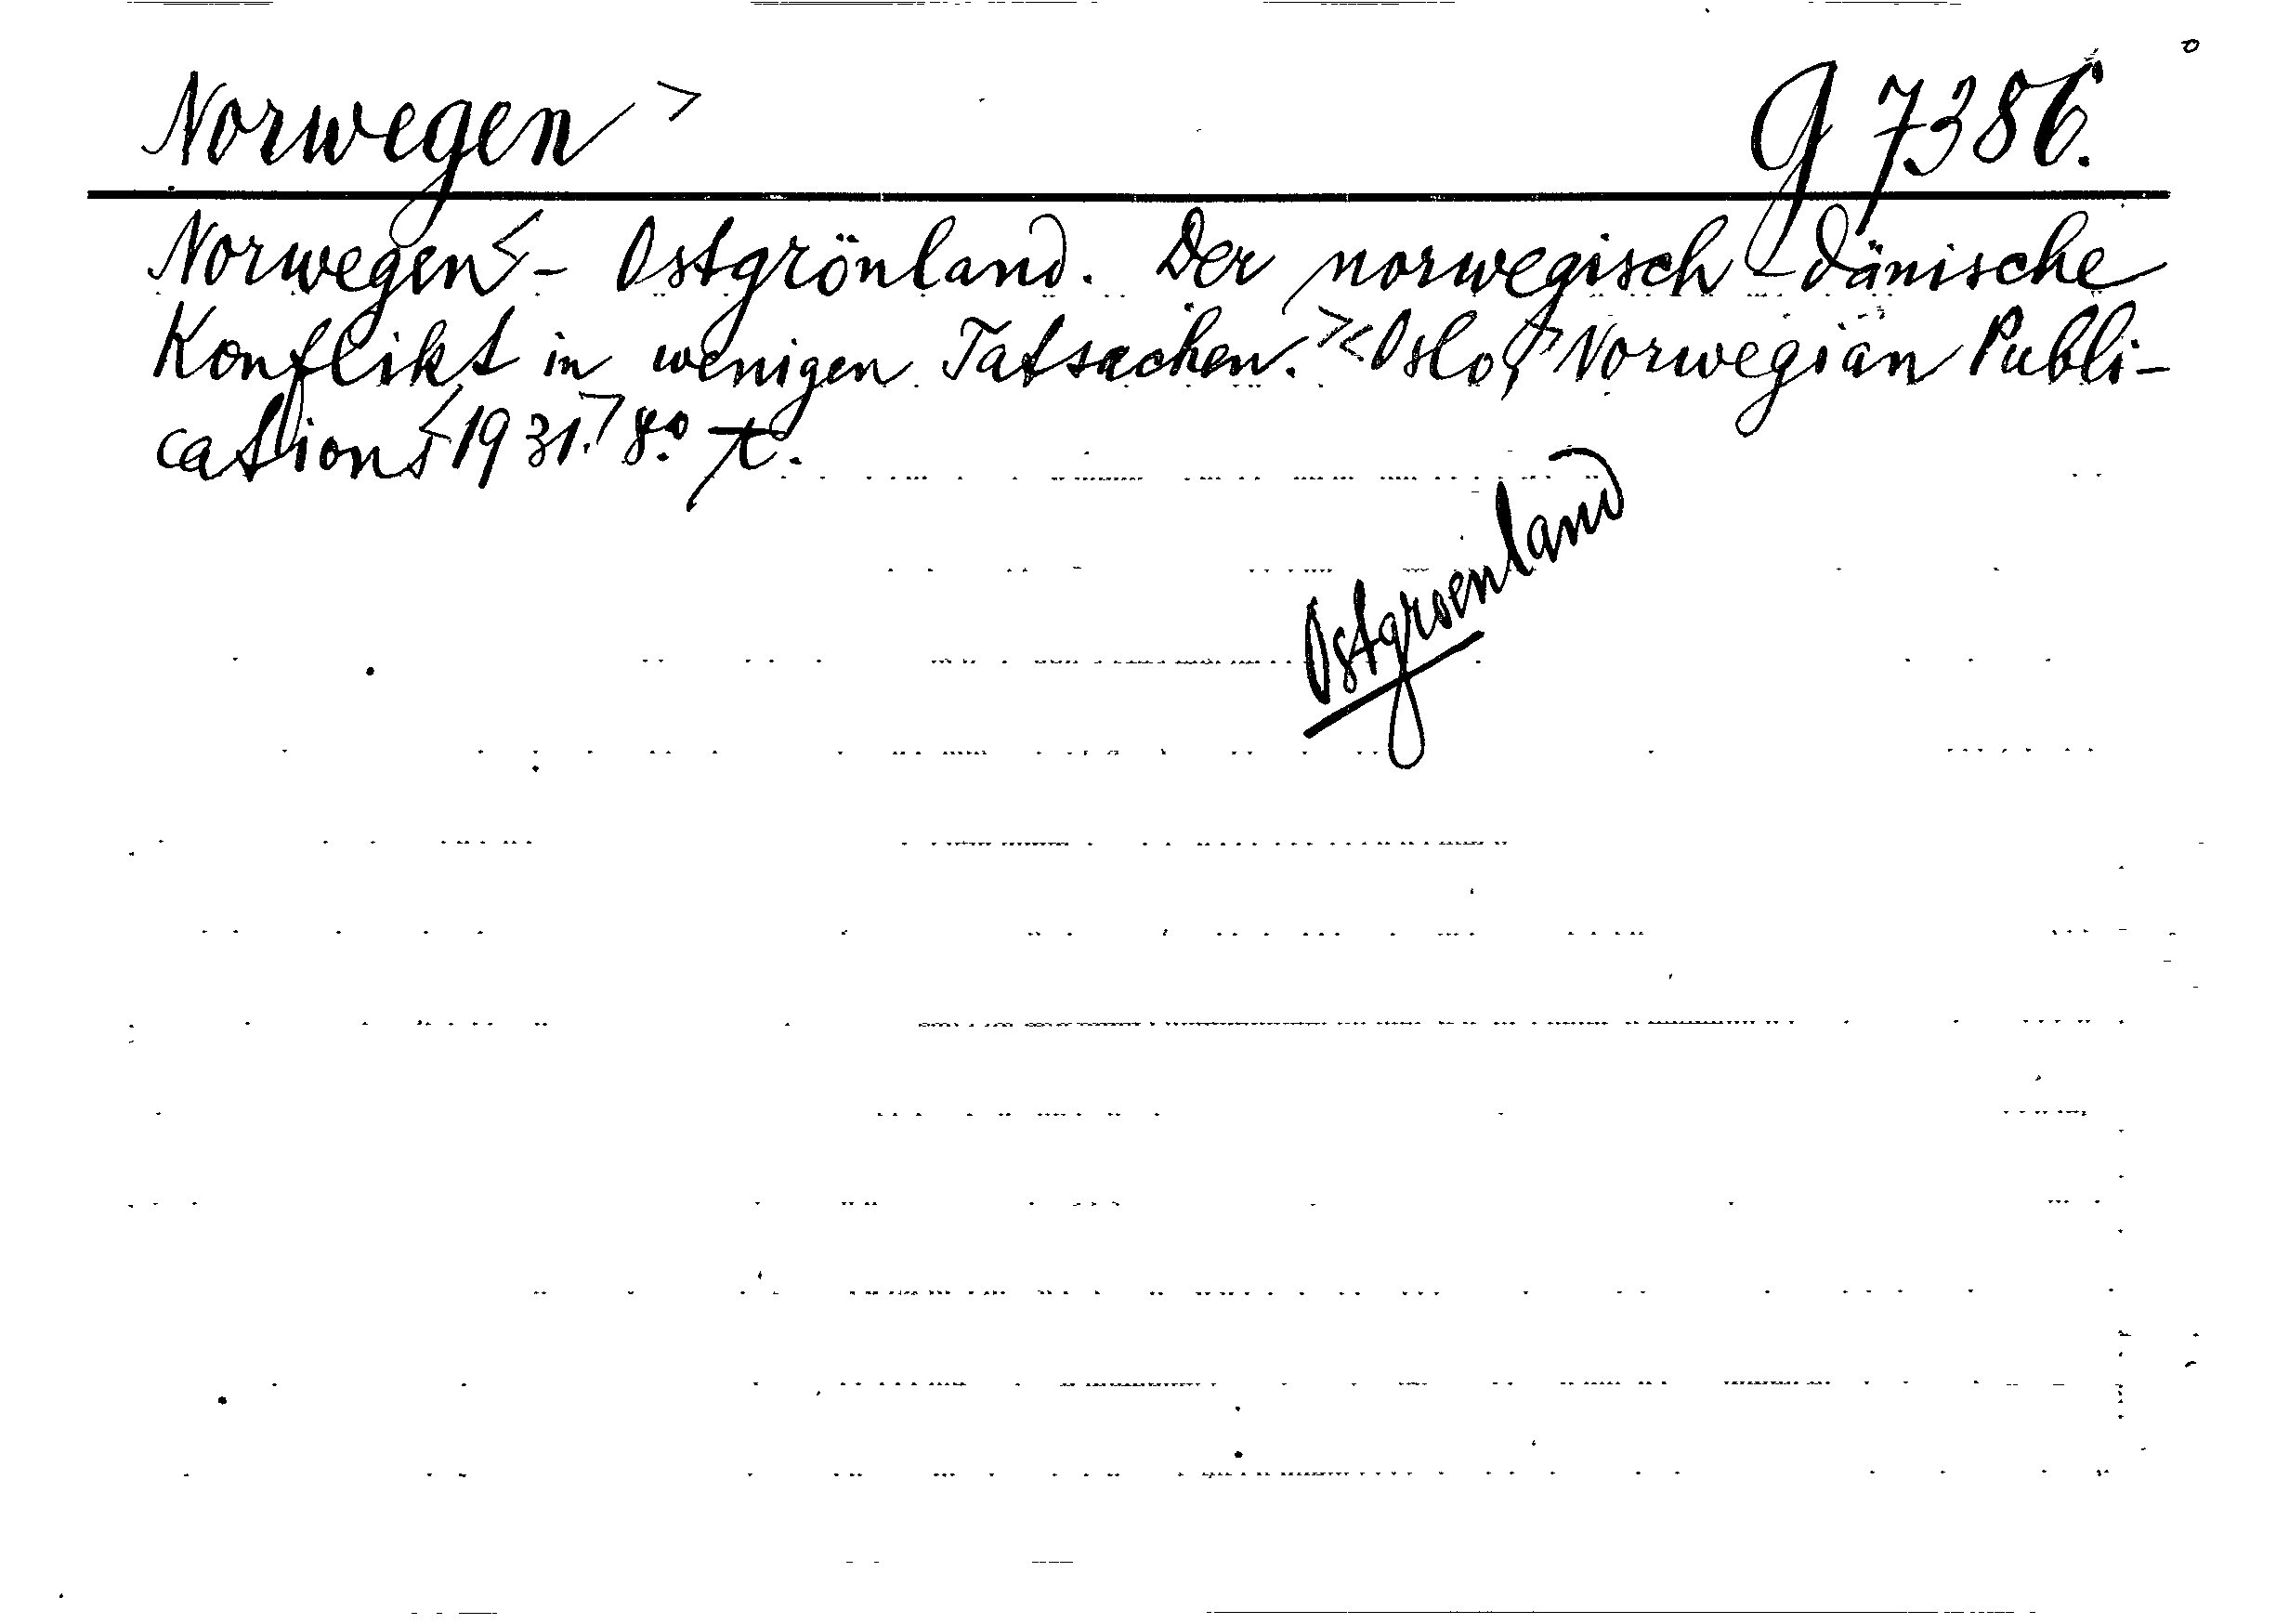 Norwegen > G 7386.
Norwegen < - Ostgrönland. Der norwegisch-dänische
Konflikt in wenigen Tatsachen. > < Oslo, > Norwegian Publi-
cations < 1931. > 8.° t.
Ostgroenland